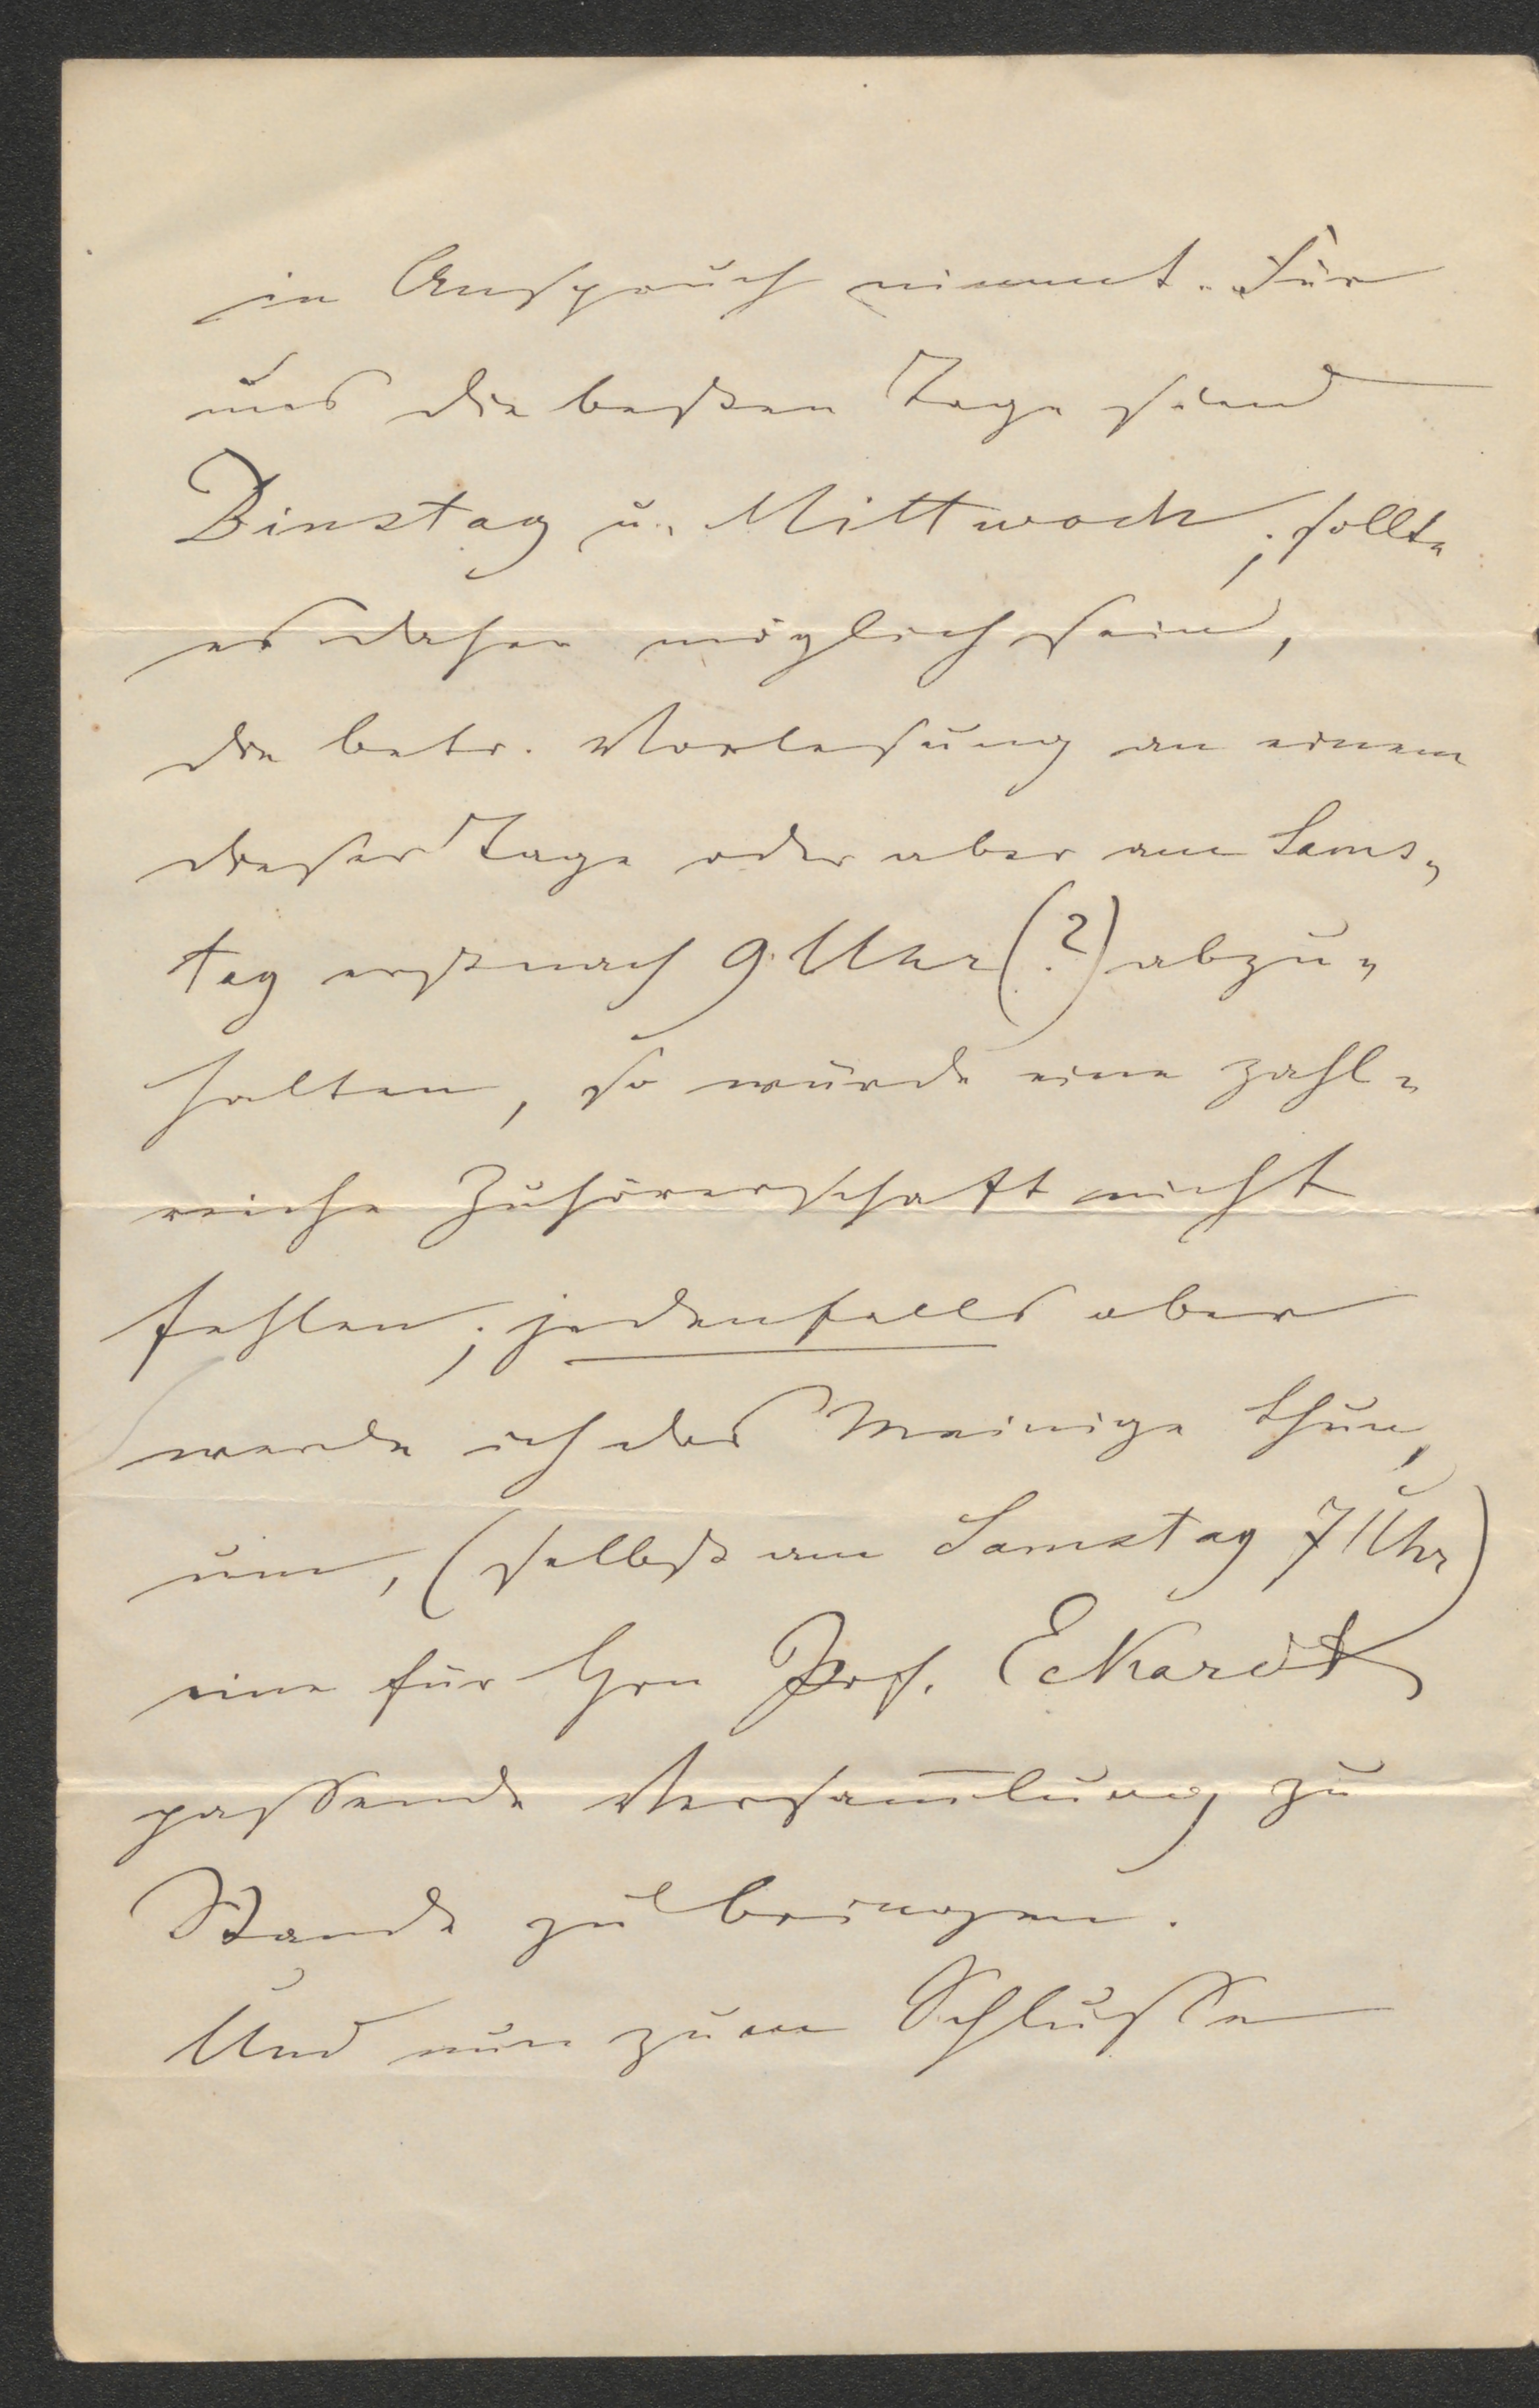 in Anspruch nimmt. Für
uns die besten Tage sind
Dinstag u. Mittwoch; sollte
es daher möglich sein,
die betr. Vorlesung an einem
dieser Tage oder aber am Sams-
tag erst nach 9 Uhr (?) abzu-
halten, so würde eine zahl-
reiche Zuhörerschaft nicht
fehlen; jedenfalls aber
werde ich das Meinige thun,
um, (selbst am Samstag 7 Uhr)
eine für Hrn Prof. Eckardt
passende Versam̅lung zu
Stande zu bringen.
Und nun zum Schlusse